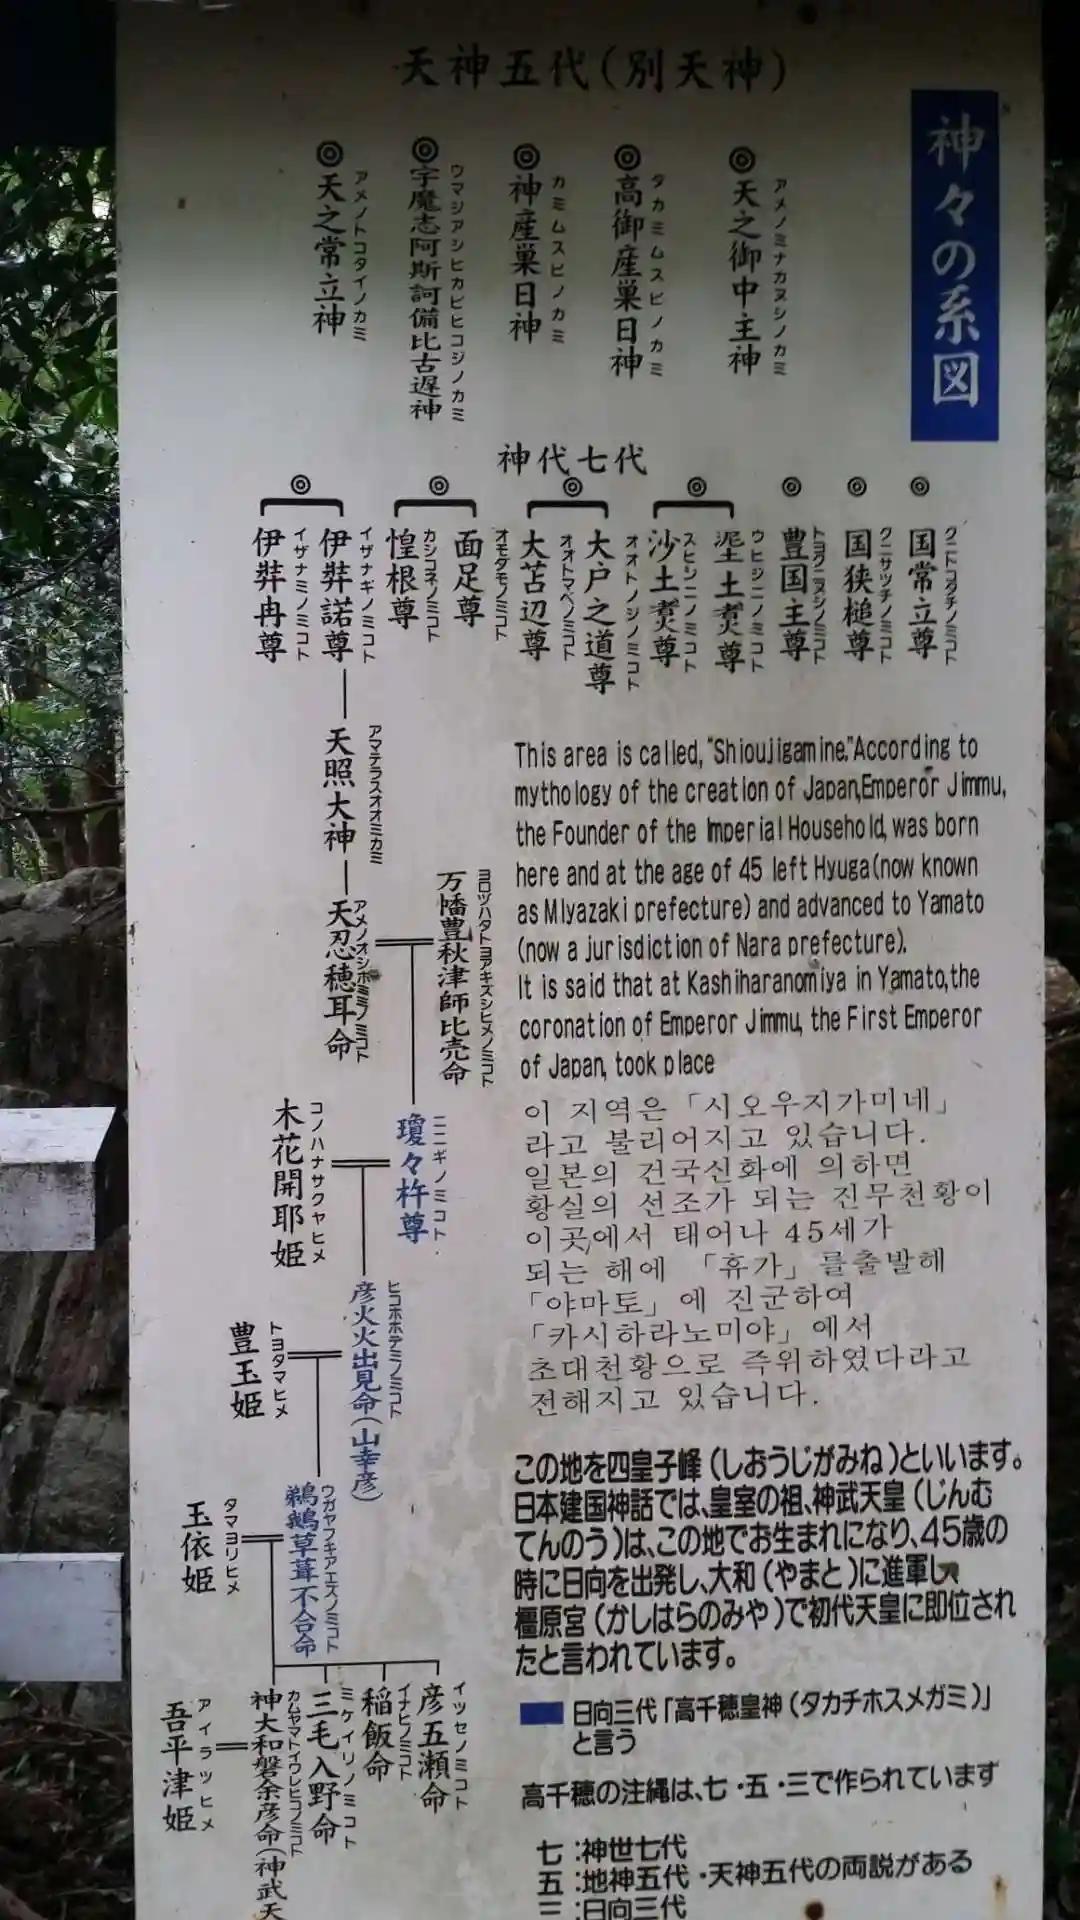 神々の系図
天神五代(別天神)
天之御中主神
アメノミナカヌシノカミ
高御産巣日神
タカミムスビノカミ
神産巣日神
カミムスビノカミ
宇魔志阿斯訶備比古遅神
ウマシアシヒカビヒコジノカミ
天之常立神
アメノトコタイノカミ
神代七代
国常立尊
クニトコタチノミコト
国狭槌尊
クニサッチノミコト
豊国主尊
トヨクニヌシノミコト
泥土煑尊
ウヒジニノミコト
沙土煑尊
スヒジニノミコト
大戸之道尊
オオトノジノミコト
大苫辺尊
オオトマベノミコト
面足尊
オモダモノミコト
惶根尊
カシコネノミコト
伊弉諾尊
イザナギノミコト
伊弉冉尊
イザナミノミコト
天照大神
アマテラスオオミカミ
万幡豊秋津師比売命
ヨロヅハタトヨアキズシヒメノミコト
天忍穂耳命
アメノオシホミミノミコト
瓊々杵尊
ニニギノミコト
木花開耶姫
コノハナサクヤヒメ
彦火火出見命(山幸彦)
ヒコホホデミノミコト
豊玉姫
トヨタマヒメ
鵜鵝草葺不合命
ウガヤフキアエズノミコト
玉依姫
タマヨリヒメ
彦五瀬命
イツセノミコト
稲飯命
イナヒノミコト
三毛入野命
ミケイリノミコト
神大和磐余彦命(神武天
カムヤマトイワレヒコノミコト
吾平津姫
アイラツヒメ
This area is called,"Shioujigamine."According to
mythology of the creation of Japan,Emperor Jimmu,
the Founder of the Imperial Household, was born
here and at the age of 45 left Hyuga(now known
as MIyazaki prefecture) and advanced to Yamato
(now a jurisdiction of Nara prefecture).
It is said that at Kashiharanomiya in Yamato,the
coronation of Emperor Jimmu, the First Emperor
of Japan, took place
이 지역은「시오우지가미네」
라고 불리어지고 있습니다.
일본의 건국신화에 의하면
황실의 선조가 되는 진무천황이
이곳에서 태어나 45세가
되는 해에 「휴가」를출발해
「야마토」에 진군하여
「카시하라노미야」에서
초대천황으로 즉위하였다라고
전해지고 있습니다.
この地を四皇子峰(しおうじがみね)といいます。
日本建国神話では、皇室の祖、神武天皇(じんむ
てんのう)は、この地でお生まれになり、45歳の
時に日向を出発し、大和(やまと)に進軍し
橿原宮(かしはらのみや)で初代天皇に即位され
たと言われています。
日向三代「高千穂皇神(タカチホスメガミ)」
と言う
高千穂の注縄は、七・五・三で作られています
七:神世七代
五:地神五代・天神五代の両説がある
三:日向三代